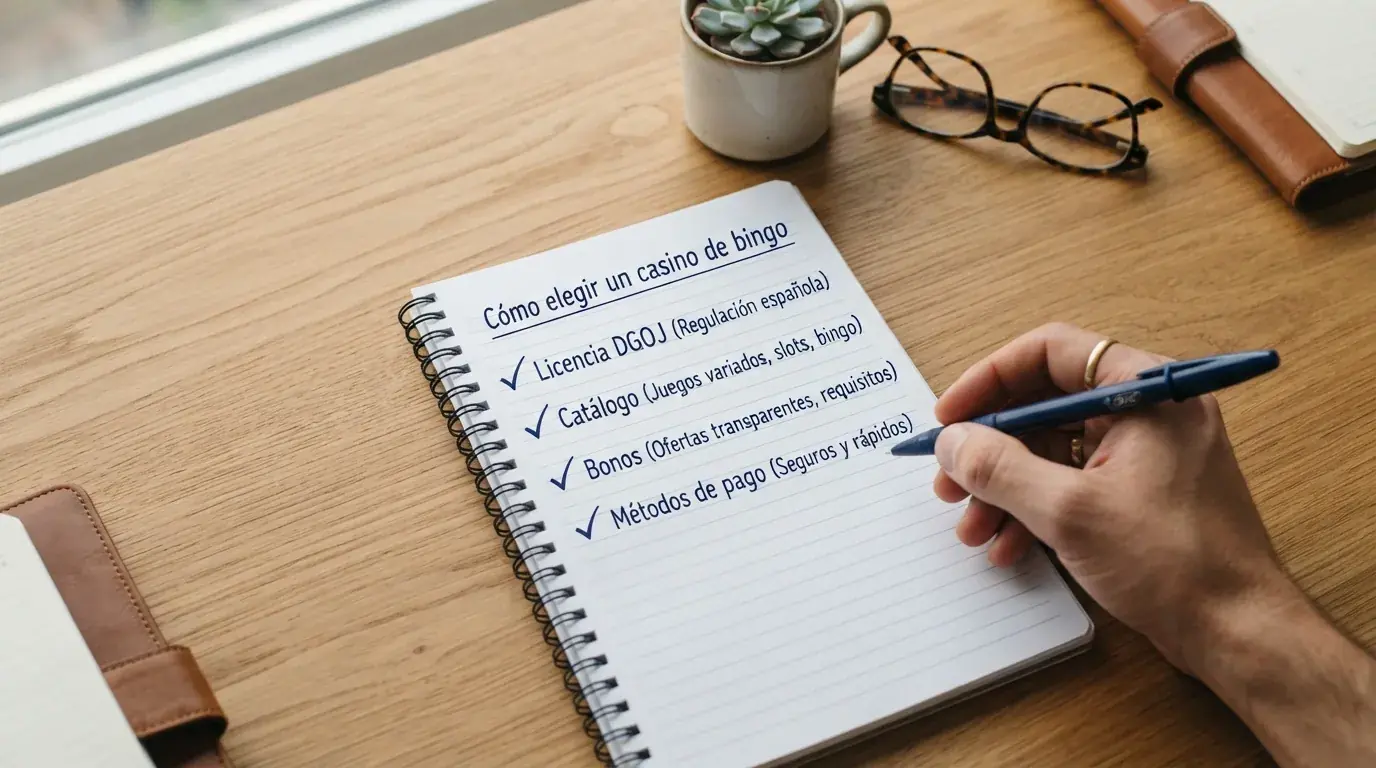 Cómo elegir un casino de bingo
✓ Licencia DGOJ (Regulación española)
✓ Catálogo (Juegos variados, slots, bingo)
✓ Bonos (Ofertas transparentes, requisitos)
✓ Métodos de pago (Seguros y rápidos)